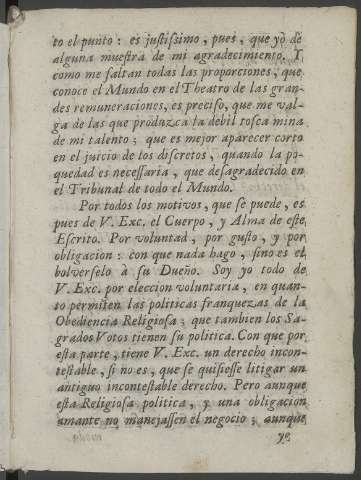 to el punto: es justissimo, pues, que yo dè
alguna muestra de mi agradecimiento. Y
como me faltan todas las proporciones, que
conoce el Mundo en el Theatro de las gran-
des remuneraciones, es preciso, que me val-
ga de las que produzca la debil tosca mina
de mi talento; que es mejor aparecer corto
en el juicio de los discretos, quando la po-
quedad es necessaria, que desagradecido en
el Tribunal de todo el Mundo.
Por todos los motivos, que se puede, es
pues de V. Exc. el Cuerpo, y Alma de este
Escrito. Por voluntad, por gusto, y por
obligacion: con que nada hago, sino es el
bolverselo à su Dueño. Soy yo todo de
V. Exc. por eleccion voluntaria, en quan-
to permiten las politicas franquezas de la
Obediencia Religiosa; que tambien los Sa-
grados Votos tienen su politica. Con que por
esta parte, tiene V. Exc. un derecho incon-
testable, si no es, que se quisiesse litigar un
antiguo incontestable derecho. Pero aunque
esta Religiosa politica, y una obligacion
amante no manejassen el negocio; aunque
yo